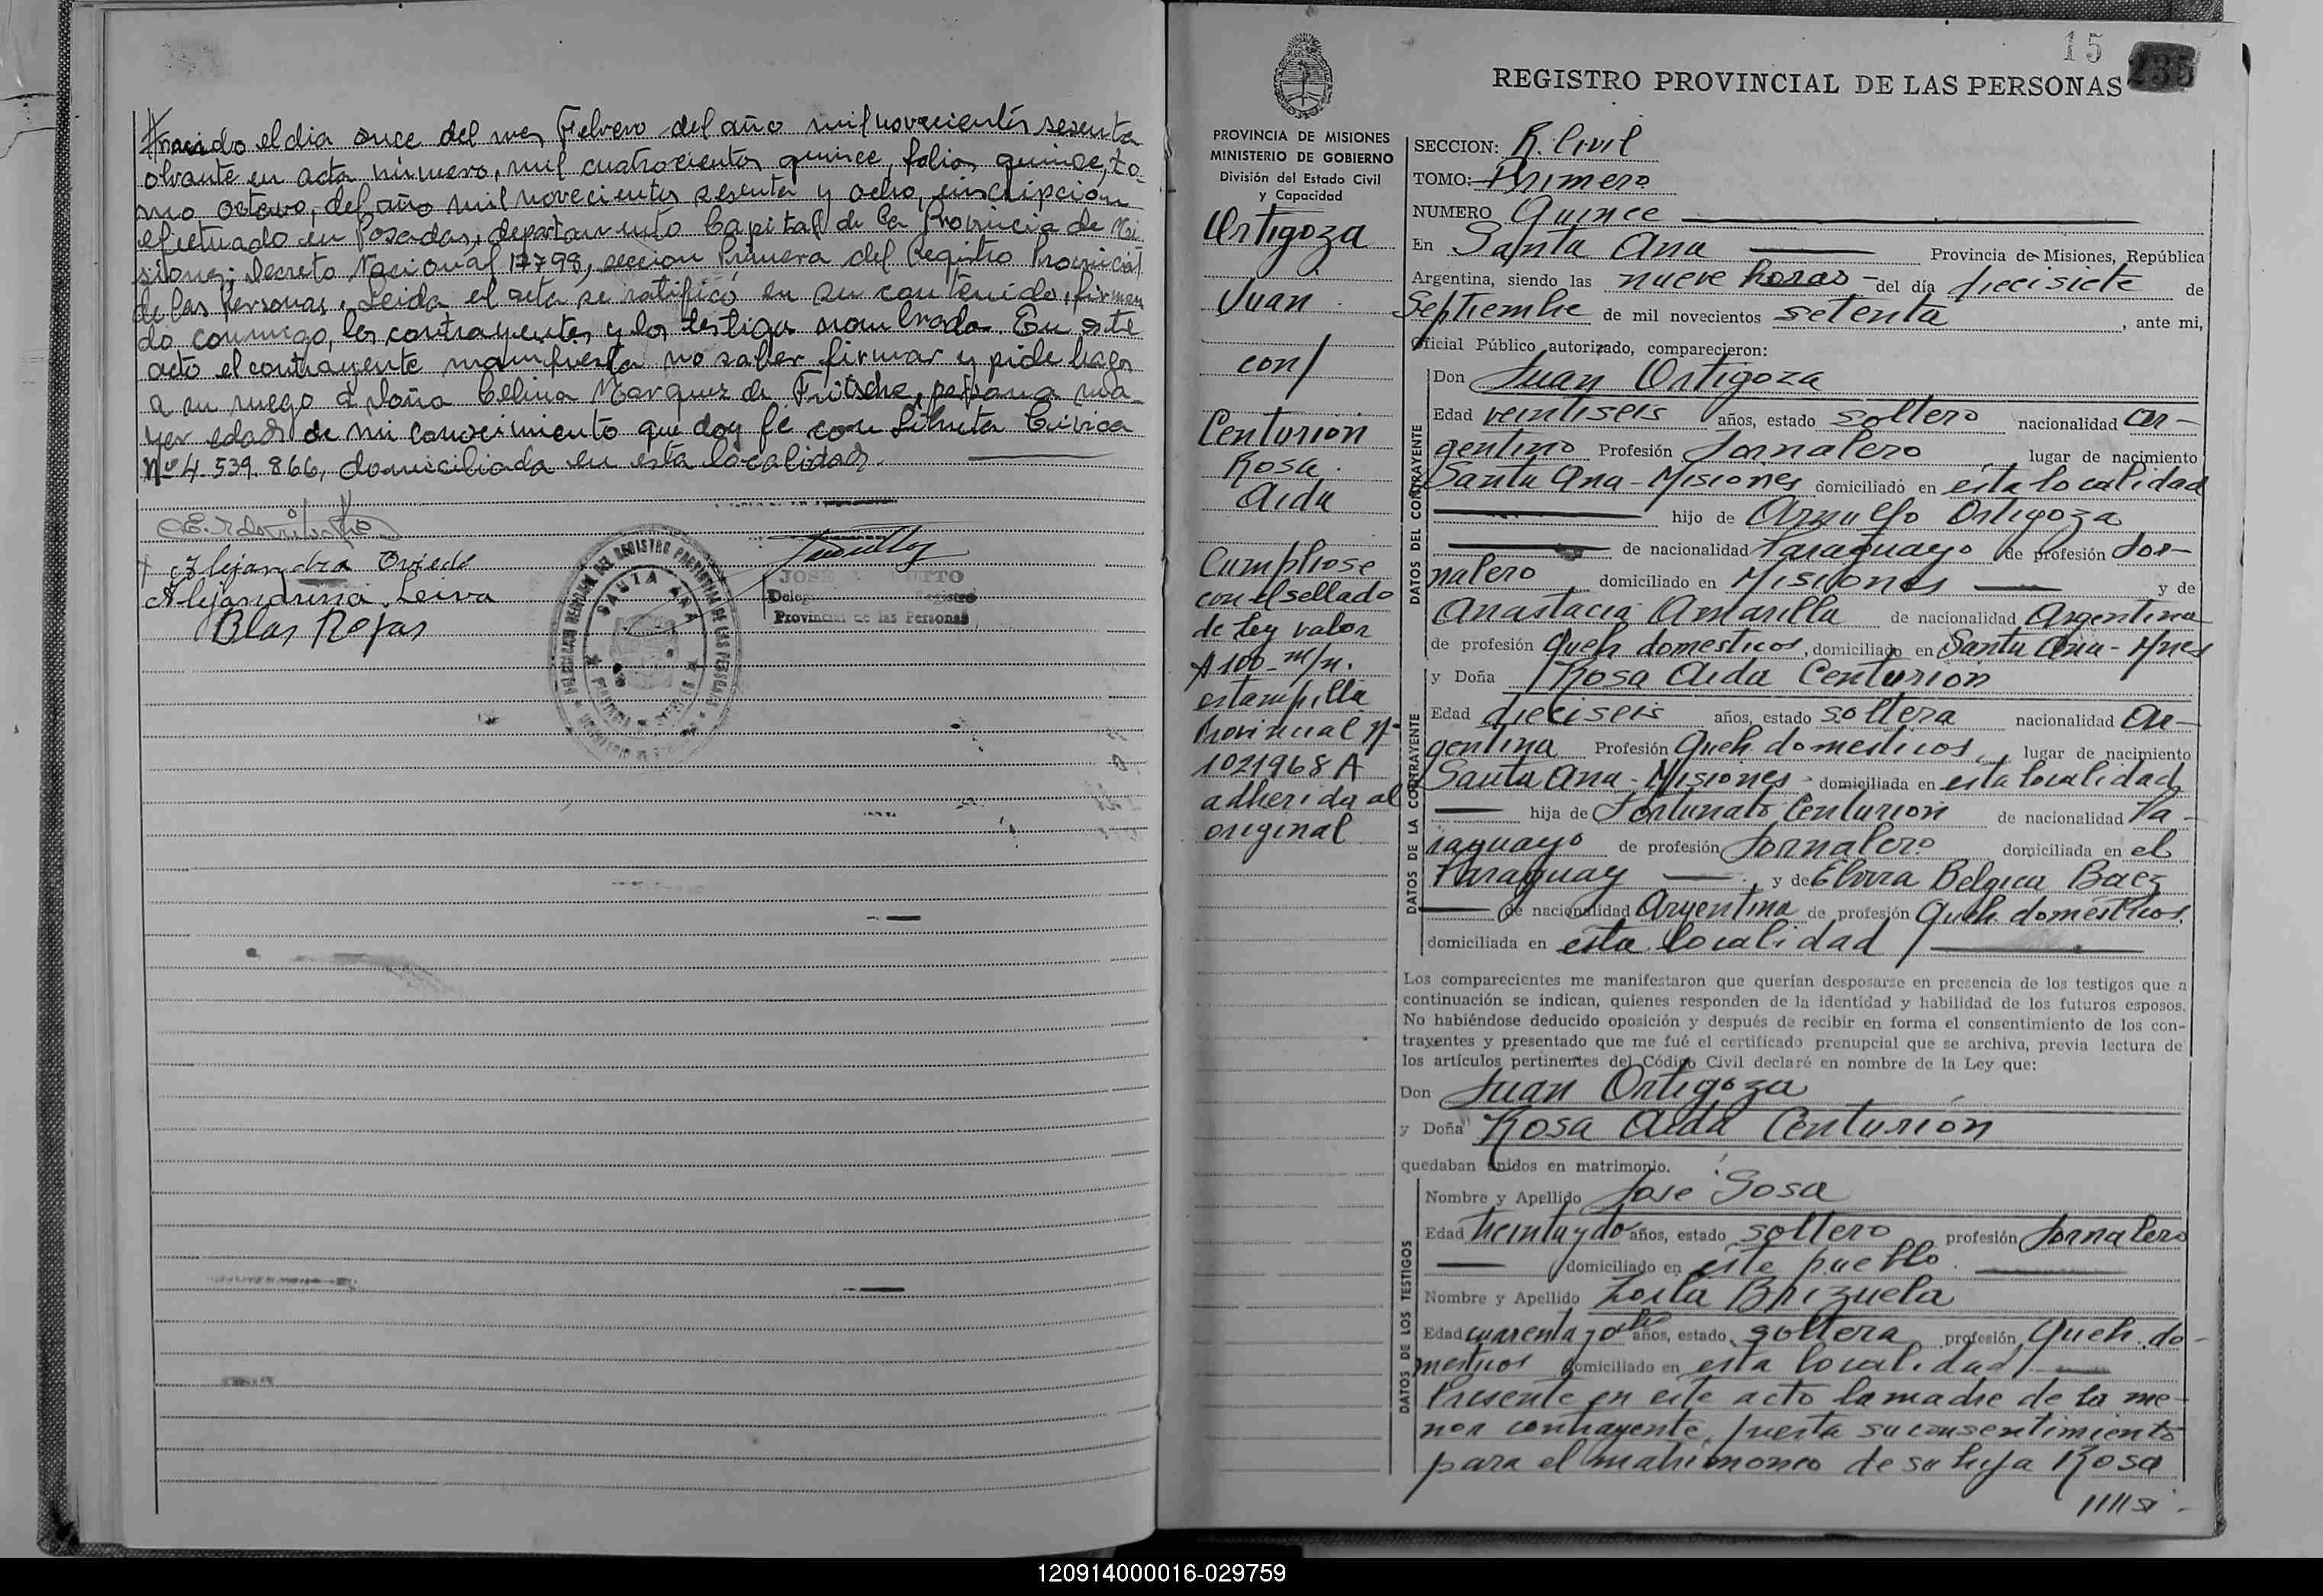 nacido el dia once del mes Febrero del año mil novecientos sesenta
obrante en acta número, mil cuatrocientos quince, folios quince, to-
mo octavo, del año mil novecientos sesenta y ocho, inscripcion
efectuado en Posadas, departamento Capital de la Provincia de Mi
siones; Decreto Nacional 17798, seccion Primera del Registro Provincial
de las Personas. Leida el acta se ratificó en su contenido, firman
do conmigo, los contrayentes y los testigos nombrado. En este
acto el contrayente manifiesta no saber firmar y pide haga
a su ruego a doña Celina Marquez de Fritsche, persona ma-
yor edad de mi conocimiento que doy fé con Libreta Civica
Nº 4.539.866, domiciliada en esta localidad.
Alejandra Oviedo
Alejandrina Leiva
Blas Rojas
SANTA ANA
JOSE
Provincial de las Personas
15
235
REGISTRO PROVINCIAL DE LAS PERSONAS
PROVINCIA DE MISIONES
MINISTERIO DE GOBIERNO
División del Estado Civil
y Capacidad
Ortigoza
Juan
con/
Centurion
Rosa
Aida
Cumpliose
con el sellado
de Ley valor
$ 100 m/n.
estampilla
Provincial Nº
1021968 A
adherida al
original
SECCION: R. Civil
TOMO: Primero
NUMERO Quince
En Santa Ana Provincia de Misiones, República
Argentina, siendo las nueve horas - del día diecisiete de
Septiembre de mil novecientos setenta, ante mi,
Oficial Público autorizado, comparecieron:
DATOS DEL CONTRAYENTE
Don Juan Ortigoza
Edad veintiseis años, estado soltero nacionalidad ar-
gentino Profesión Jornalero lugar de nacimiento
Santa Ana - Misiones domiciliado en esta localidad
hijo de Arnulfo Ortigoza
de nacionalidad Paraguayo de profesión Jor-
nalero domiciliado en Misiones y de
Anastacia Amarilla de nacionalidad Argentina
de profesión Queh domesticos, domiciliado en Santa Ana - Mnes
DATOS DE LA CONTRAYENTE
y Doña Rosa Aida Centurion
Edad dieciseis años, estado soltera nacionalidad Ar-
gentina Profesión Queh. domesticos, lugar de nacimiento
Santa Ana - Misiones - domiciliada en esta localidad
hija de Fortunato Centurion de nacionalidad Pa-
raguayo de profesión Jornalero domiciliada en el
Paraguay y de Elvira Belgica Baez
de nacionalidad Argentina de profesión Queh. domesticos.
domiciliada en esta localidad /
Los comparecientes me manifestaron que querían desposarse en presencia de los testigos que a
continuación se indican, quienes responden de la identidad y habilidad de los futuros esposos.
No habiéndose deducido oposición y después de recibir en forma el consentimiento de los con-
trayentes y presentado que me fué el certificado prenupcial que se archiva, previa lectura de
los artículos pertinentes del Código Civil declaré en nombre de la Ley que:
Don Juan Ortigoza
y Doña Rosa Aida Centurion
quedaban unidos en matrimonio.
DATOS DE LOS TESTIGOS
Nombre y Apellido Jose Sosa
Edad treinta y do años, estado soltero profesión Jornalero
domiciliado en este pueblo.
Nombre y Apellido Zoila Brizuela
Edad cuarenta y ocho años, estado soltera profesión Queh. do-
mesticos domiciliado en esta localidad /
Presente en este acto la madre de la me-
nor contrayente, presta su consentimiento
para el matrimoneo de su hija Rosa
120914000016-029759